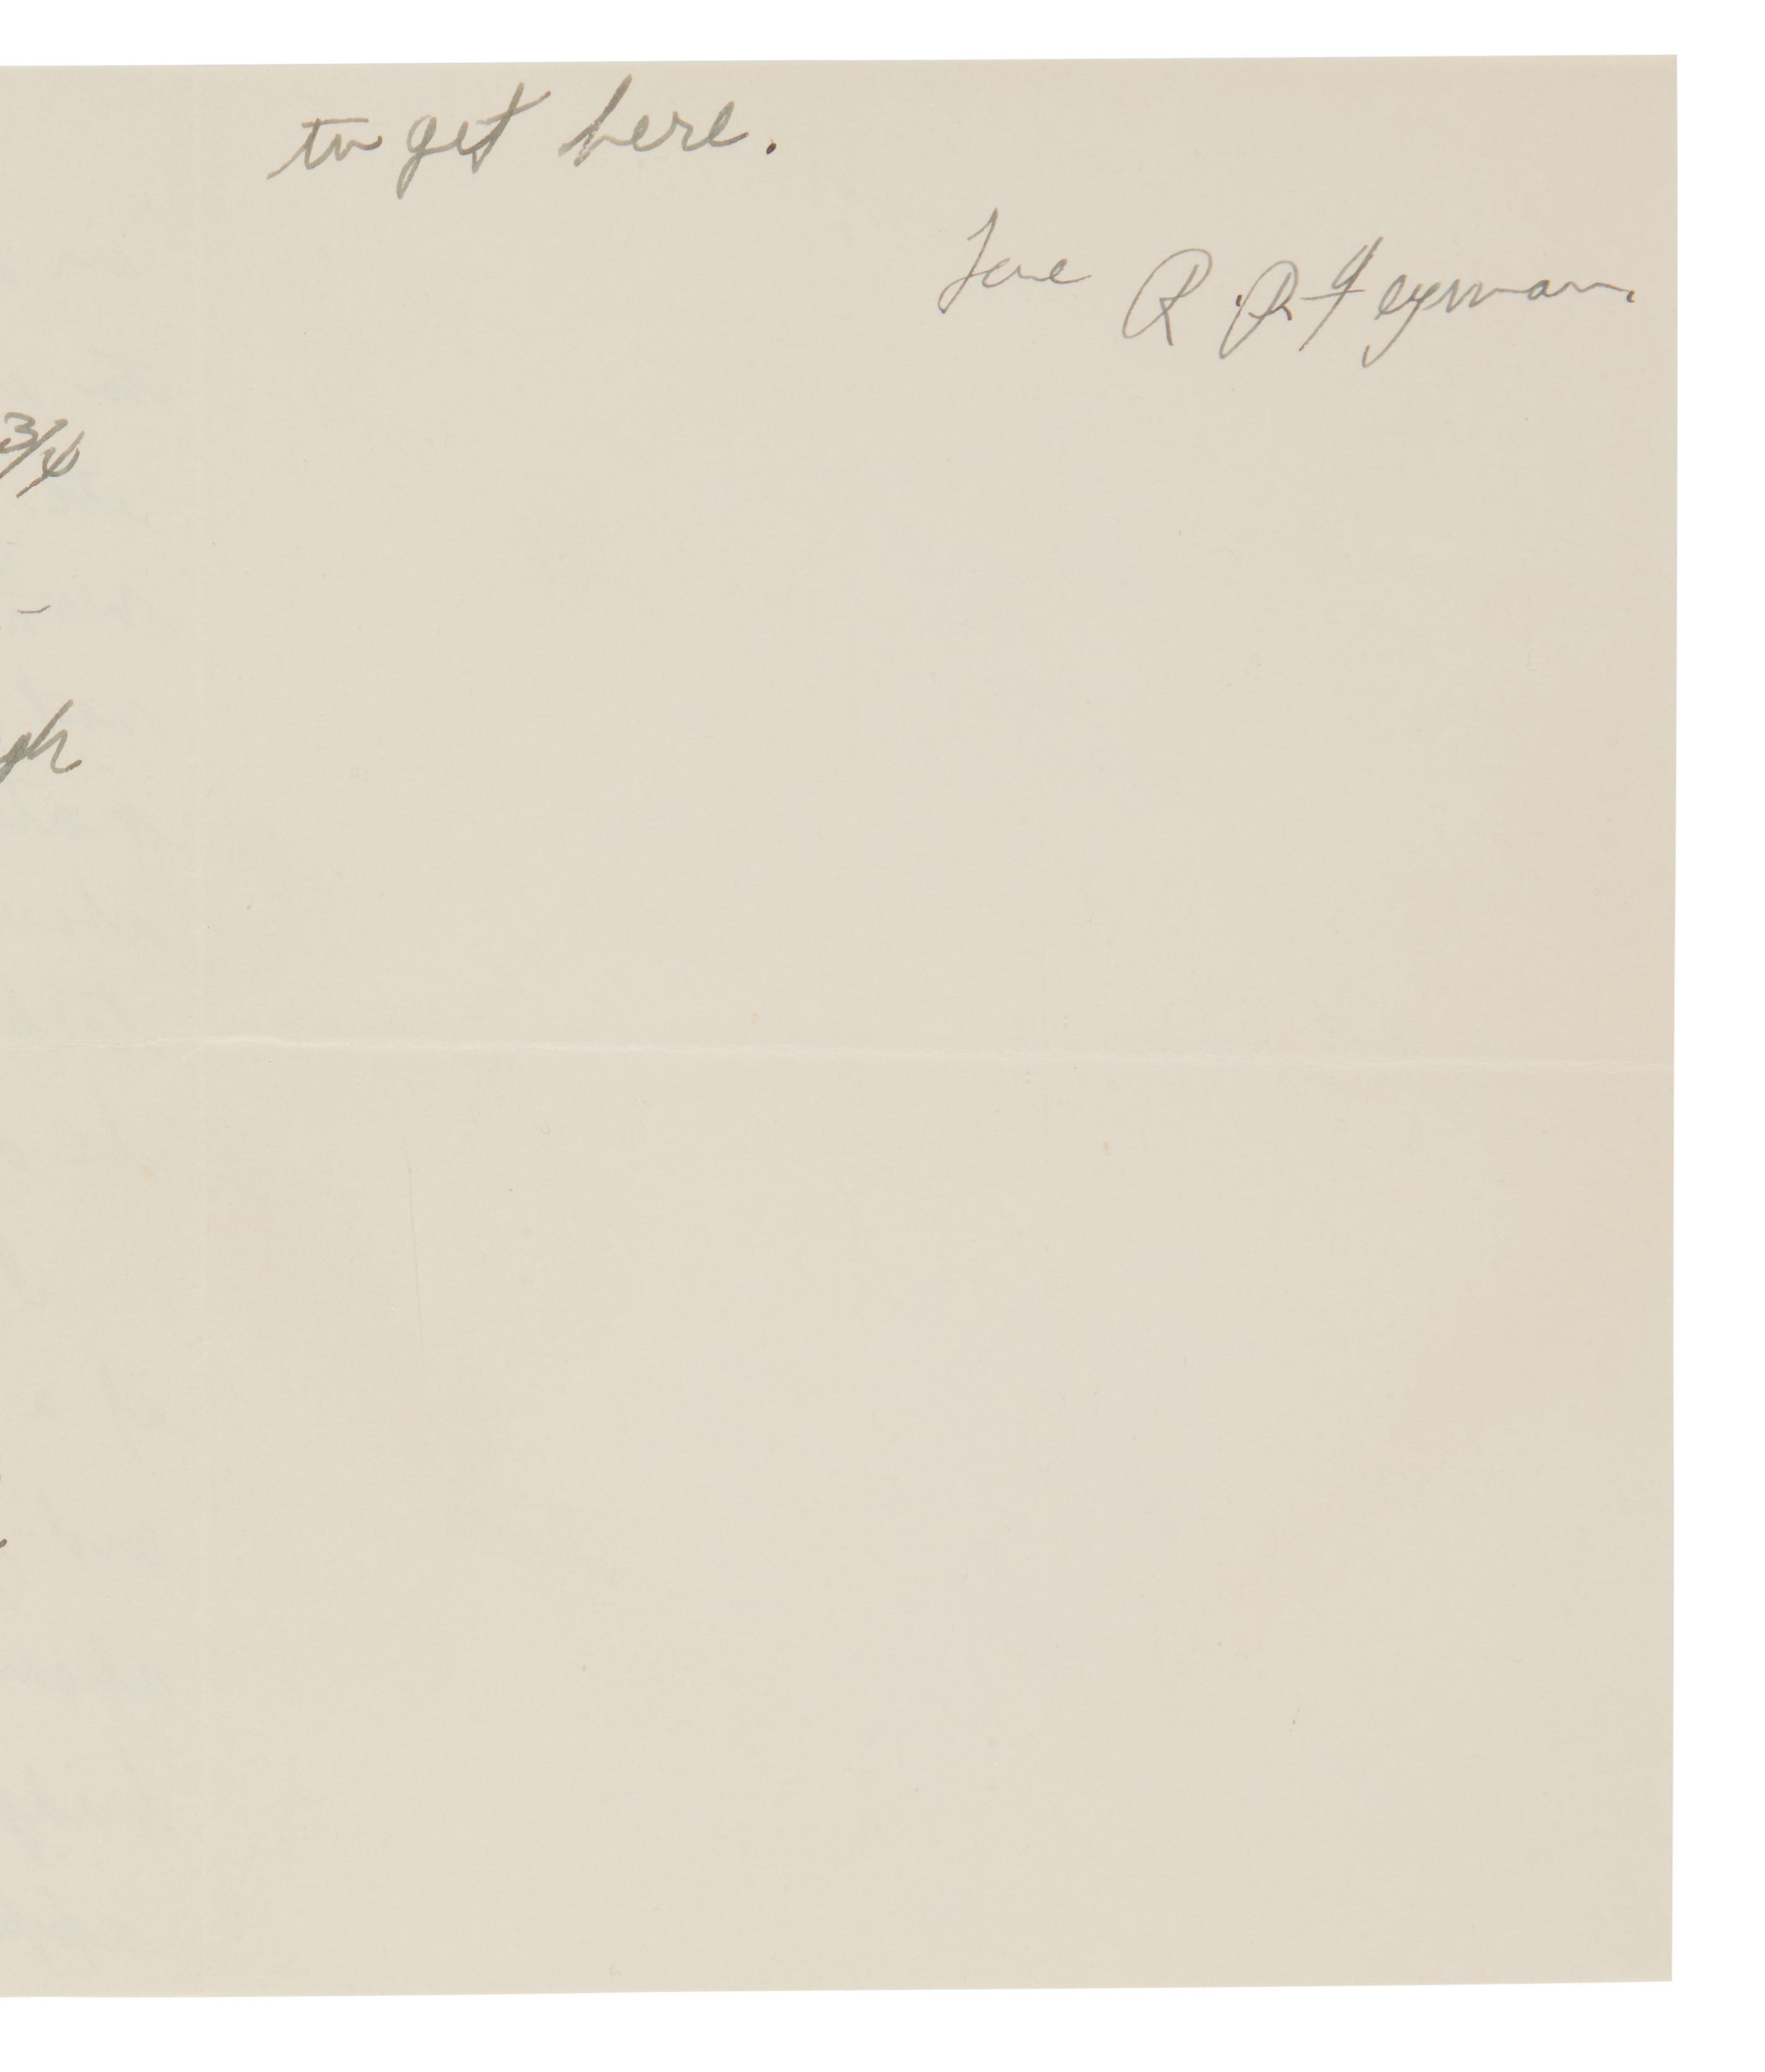 to get here.
Love R.P. Feynman.
3/4
-
gh